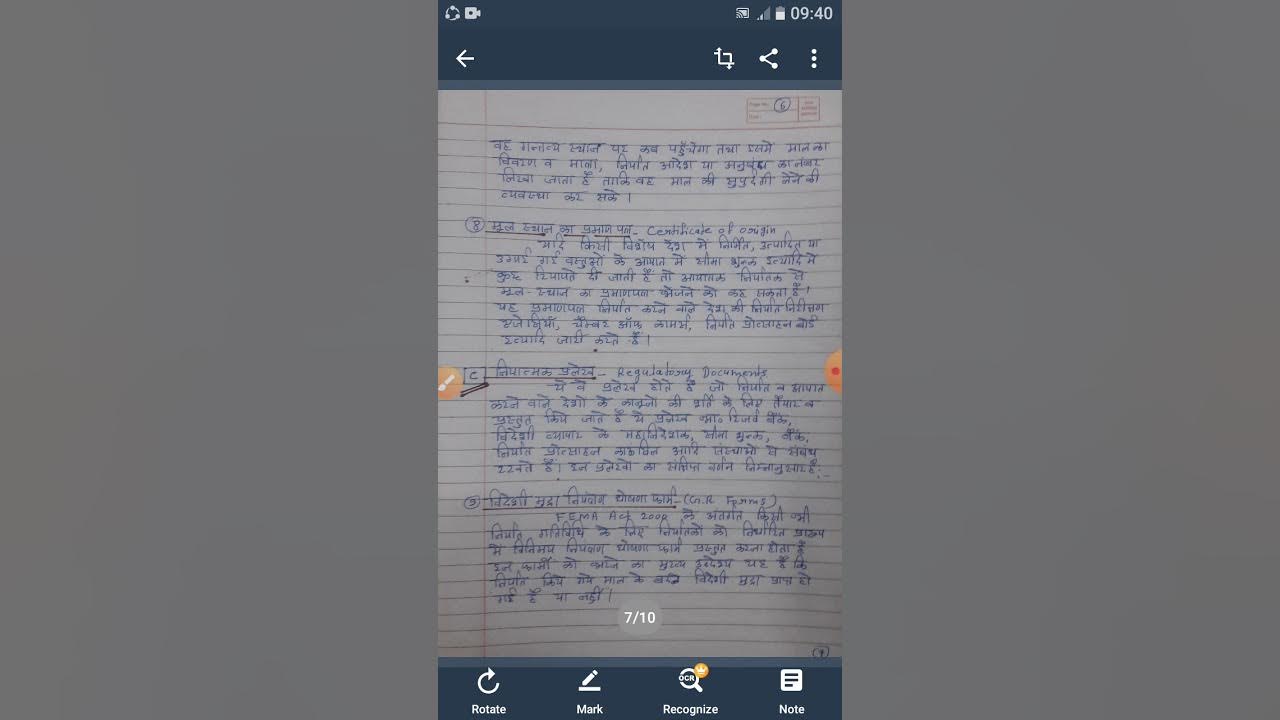 09:40
Page No. 6
Date
वह गन्तव्य स्थान पर कब पहुँचेगा तथा इसमें माल का
विवरण व मात्रा, निर्यात आदेश या अनुबंध का नम्बर
लिखा जाता है ताकि वह माल की सुपुर्दगी लेने की
व्यवस्था कर सके।
8 मूल स्थान का प्रमाण पत्र- Certificate of origin
यदि किसी विशेष देश में निर्मित, उत्पादित या
उगाई गई वस्तुओं के आयात में सीमा शुल्क इत्यादि में
कुछ रियायते दी जाती है तो आयातक निर्यातक से
मूल-स्थान का प्रमाणपत्र भेजने को कह सकता है।
यह प्रमाणपत्र निर्यात करने वाले देश की निर्यात निरीक्षण
एजेन्सियाँ, चैम्बर ऑफ कामर्स, निर्यात प्रोत्साहन बोर्ड
इत्यादि जारी करते है।
C नियात्मक प्रलेख- Regulatory Documents
ये वे प्रलेख होते है जो निर्यात व आयात
करने वाले देशो के कानूनो की शर्त के लिए तैयार व
प्रस्तुत किये जाते है ये प्रलेख भा० रिजर्व बैंक,
विदेशी व्यापार के महानिदेशक, सीमा शुल्क, बैंक,
निर्यात प्रोत्साहन आदि संस्थाओ से संबंध
रखते है। इन प्रलेखो का संक्षिप्त वर्णन निम्नानुसार है:-
9 विदेशी मुद्रा नियंत्रण घोषणा फार्म-(G.R Forms)
FEMA Act 2000 के अंतर्गत किसी भी
निर्यात गतिविधि के लिए निर्यातको को निर्धारित प्रारूप
में विनिमय नियंत्रण घोषणा फार्म प्रस्तुत करना होता है
इन फार्मो को भरने का मुख्य उद्देश्य यह है कि
निर्यात किये गये माल के बदले विदेशी मुद्रा प्राप्त हो
गई है या नहीं।
7/10
Rotate
Mark
OCR
Recognize
Note